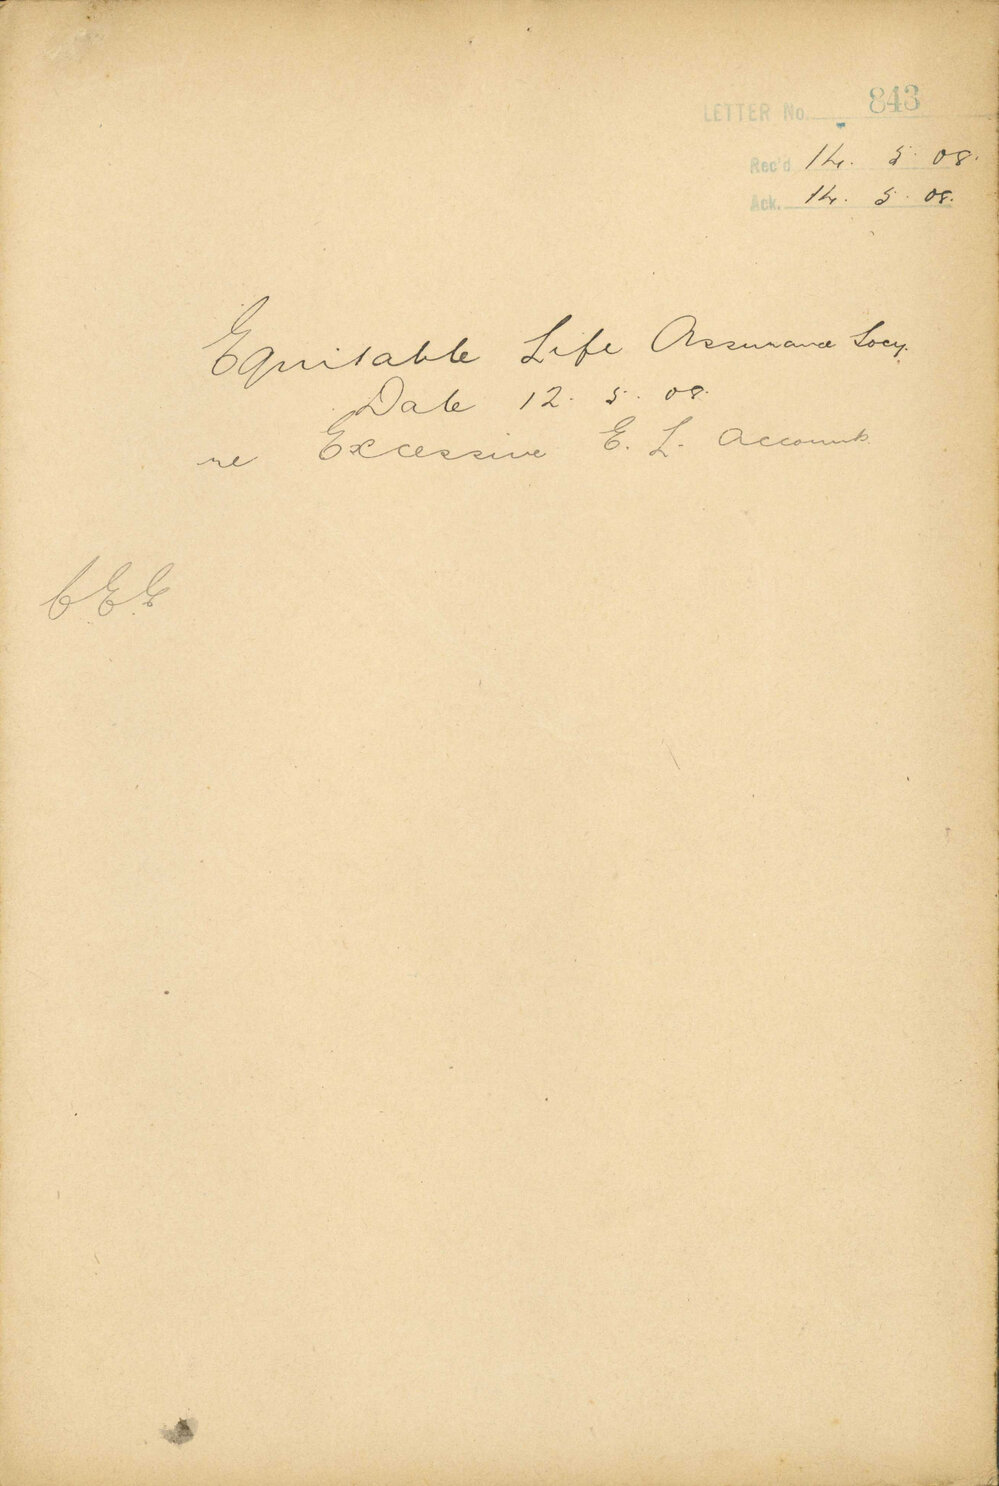 LETTER No. 843
Rec'd 14. 5. 08.
Ack. 14. 5. 08.
Equitable Life Assurance Socy.
Date 12. 5. 08.
re Excessive E. L. Accounts
C.E.E.